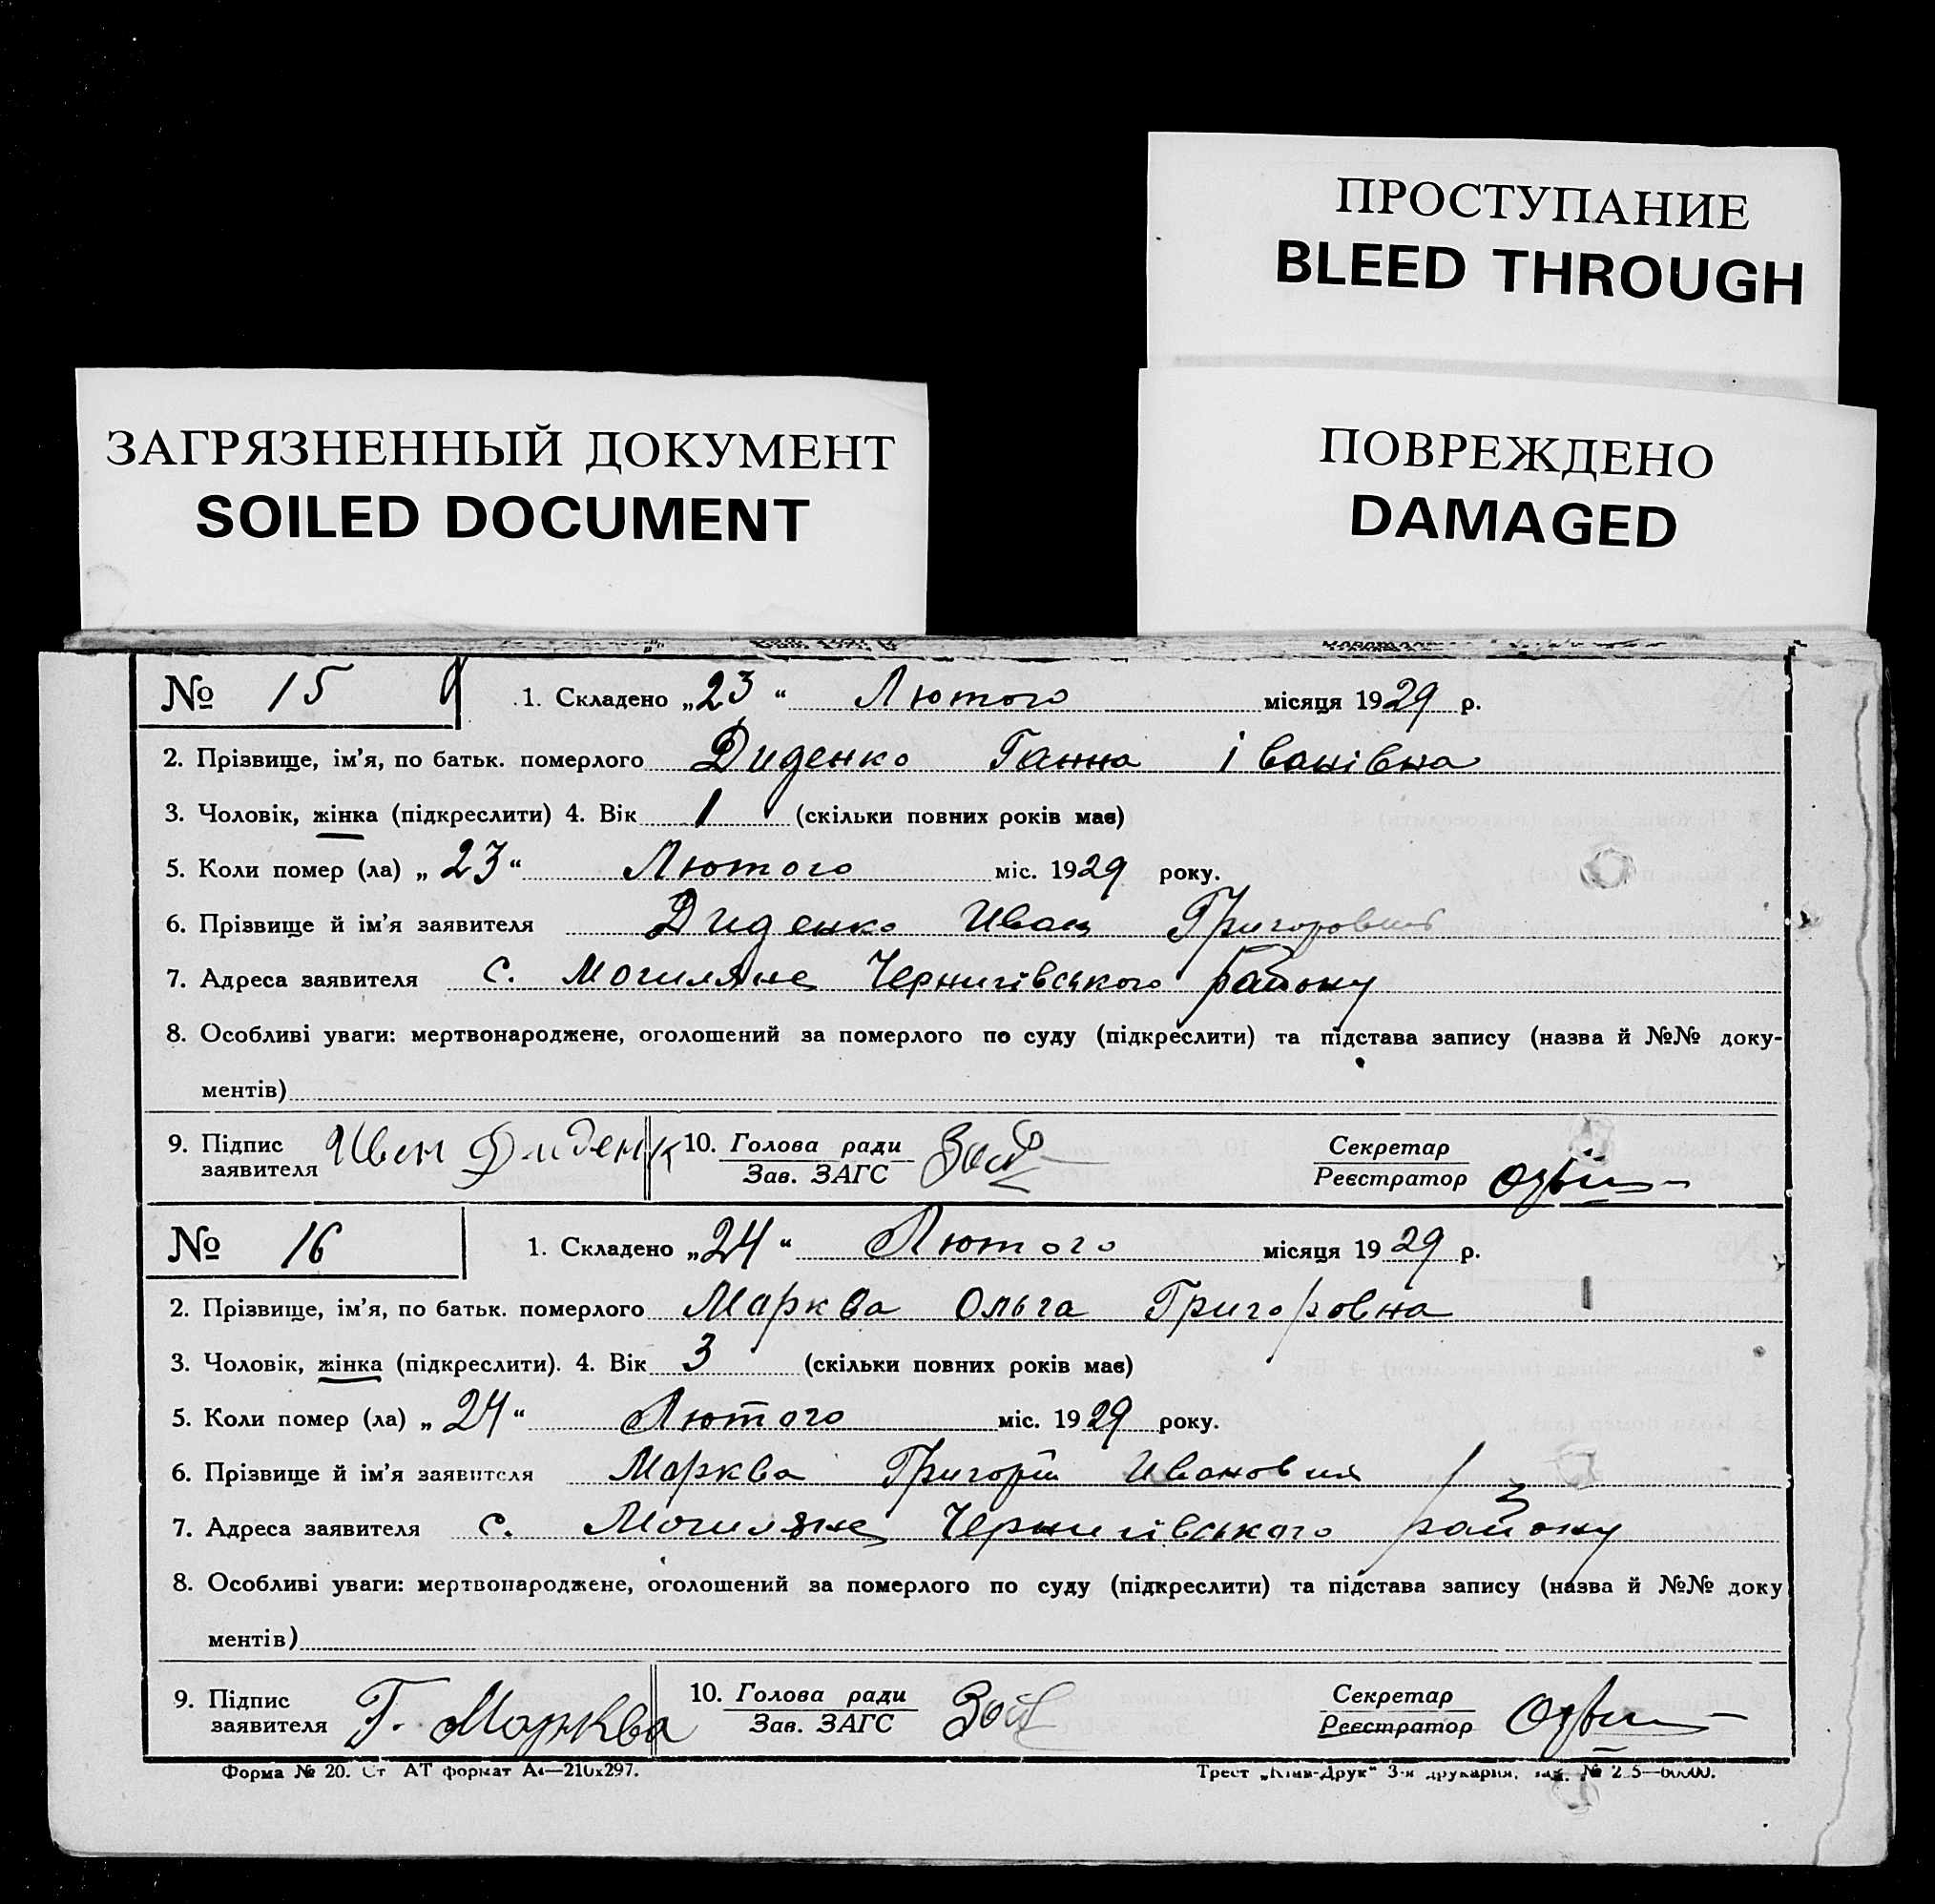 ПРОСТУПАНИЕ
BLEED THROUGH
ЗАГРЯЗНЕННЫЙ ДОКУМЕНТ
SOILED DOCUMENT
ПОВРЕЖДЕНО
DAMAGED
№ 15 1. Складено „23“ Лютого місяця 1929 р.
2. Прізвище, ім'я, по батьк. померлого Диденко Ганна Іванівна
3. Чоловік, жінка (підкреслити) 4. Вік 1 (скільки повних років має)
5. Коли помер (ла) „23“ Лютого міс. 1929 року.
6. Прізвище й ім'я заявителя Диденко Иван Григорович
7. Адреса заявителя с. Могиляне Чернигівського району
8. Особливі уваги: мертвонароджене, оголошений за померлого по суду (підкреслити) та підстава запису (назва й №№ доку-
ментів)
9. Підпис заявителя Иван Диденк 10. Голова ради Секретар
Зав. ЗАГС Реєстратор
№ 16 1. Складено „24“ Лютого місяця 1929 р.
2. Прізвище, ім'я, по батьк. померлого Марква Ольга Григоровна
3. Чоловік, жінка (підкреслити). 4. Вік 3 (скільки повних років має)
5. Коли помер (ла) „24“ Лютого міс. 1929 року.
6. Прізвище й ім'я заявителя Марква Григорій Иванович
7. Адреса заявителя с. Могиляне Чернигівського району
8. Особливі уваги: мертвонароджене, оголошений за померлого по суду (підкреслити) та підстава запису (назва й №№ доку
ментів)
9. Підпис заявителя Г. Марква 10. Голова ради Секретар
Зав. ЗАГС Реєстратор
Форма № 20. Ст АТ формат А4—210х297. Трест „Київ-Друк“ 3-я друкарня, зак. №